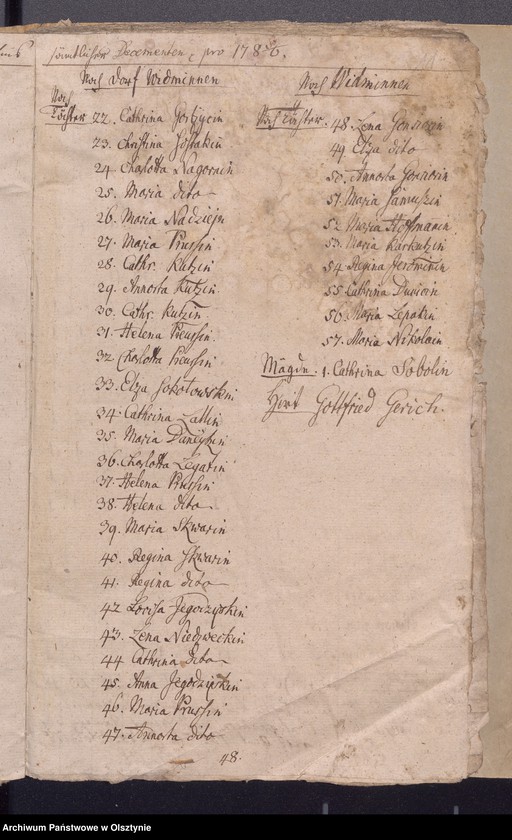 sämtlicher Decementen, pro 1786.
Noch Dorf Widminnen
Noch
Töchter 22. Cathrina Gortzycin
23. Christina
24. Charlotta Nagornin
25. Maria dito
26. Maria Nadzieja
27. Maria Prussin
28. Cathr. Kutzin
29. Annorta Kutzin
30. Cathr. Kutzin
31. Helena Preussin
32. Charlotta Preussin
33. Elza Sokolowskin
34. Cathrina Zallin
35. Maria
36. Charlotta Legatin
37. Helena Prussin
38. Helena dito
39. Maria Skwarin
40. Regina Skwarin
41. Regina dito
42 Lovisa Jegodzinskin
43. Lena Niedzweckin
44 Cathrina dito
45. Anna Jegodzinskin
46. Maria Prussin
47. Annorta dito
48.
Noch Widminnen
Noch Töchter. 48. Lena
49. Elza dito
50. Annorta
51. Maria Januszin
52 Maria Hoffmanin
53. Maria Karkutzin
54. Regina Jerominin
55 Cathrina
56. Maria Lepakin
57. Maria Nikolain
Mägde. 1. Cathrina Sobolin
Hirt Gottfried Gerich.
Archiwum Państwowe w Olsztynie